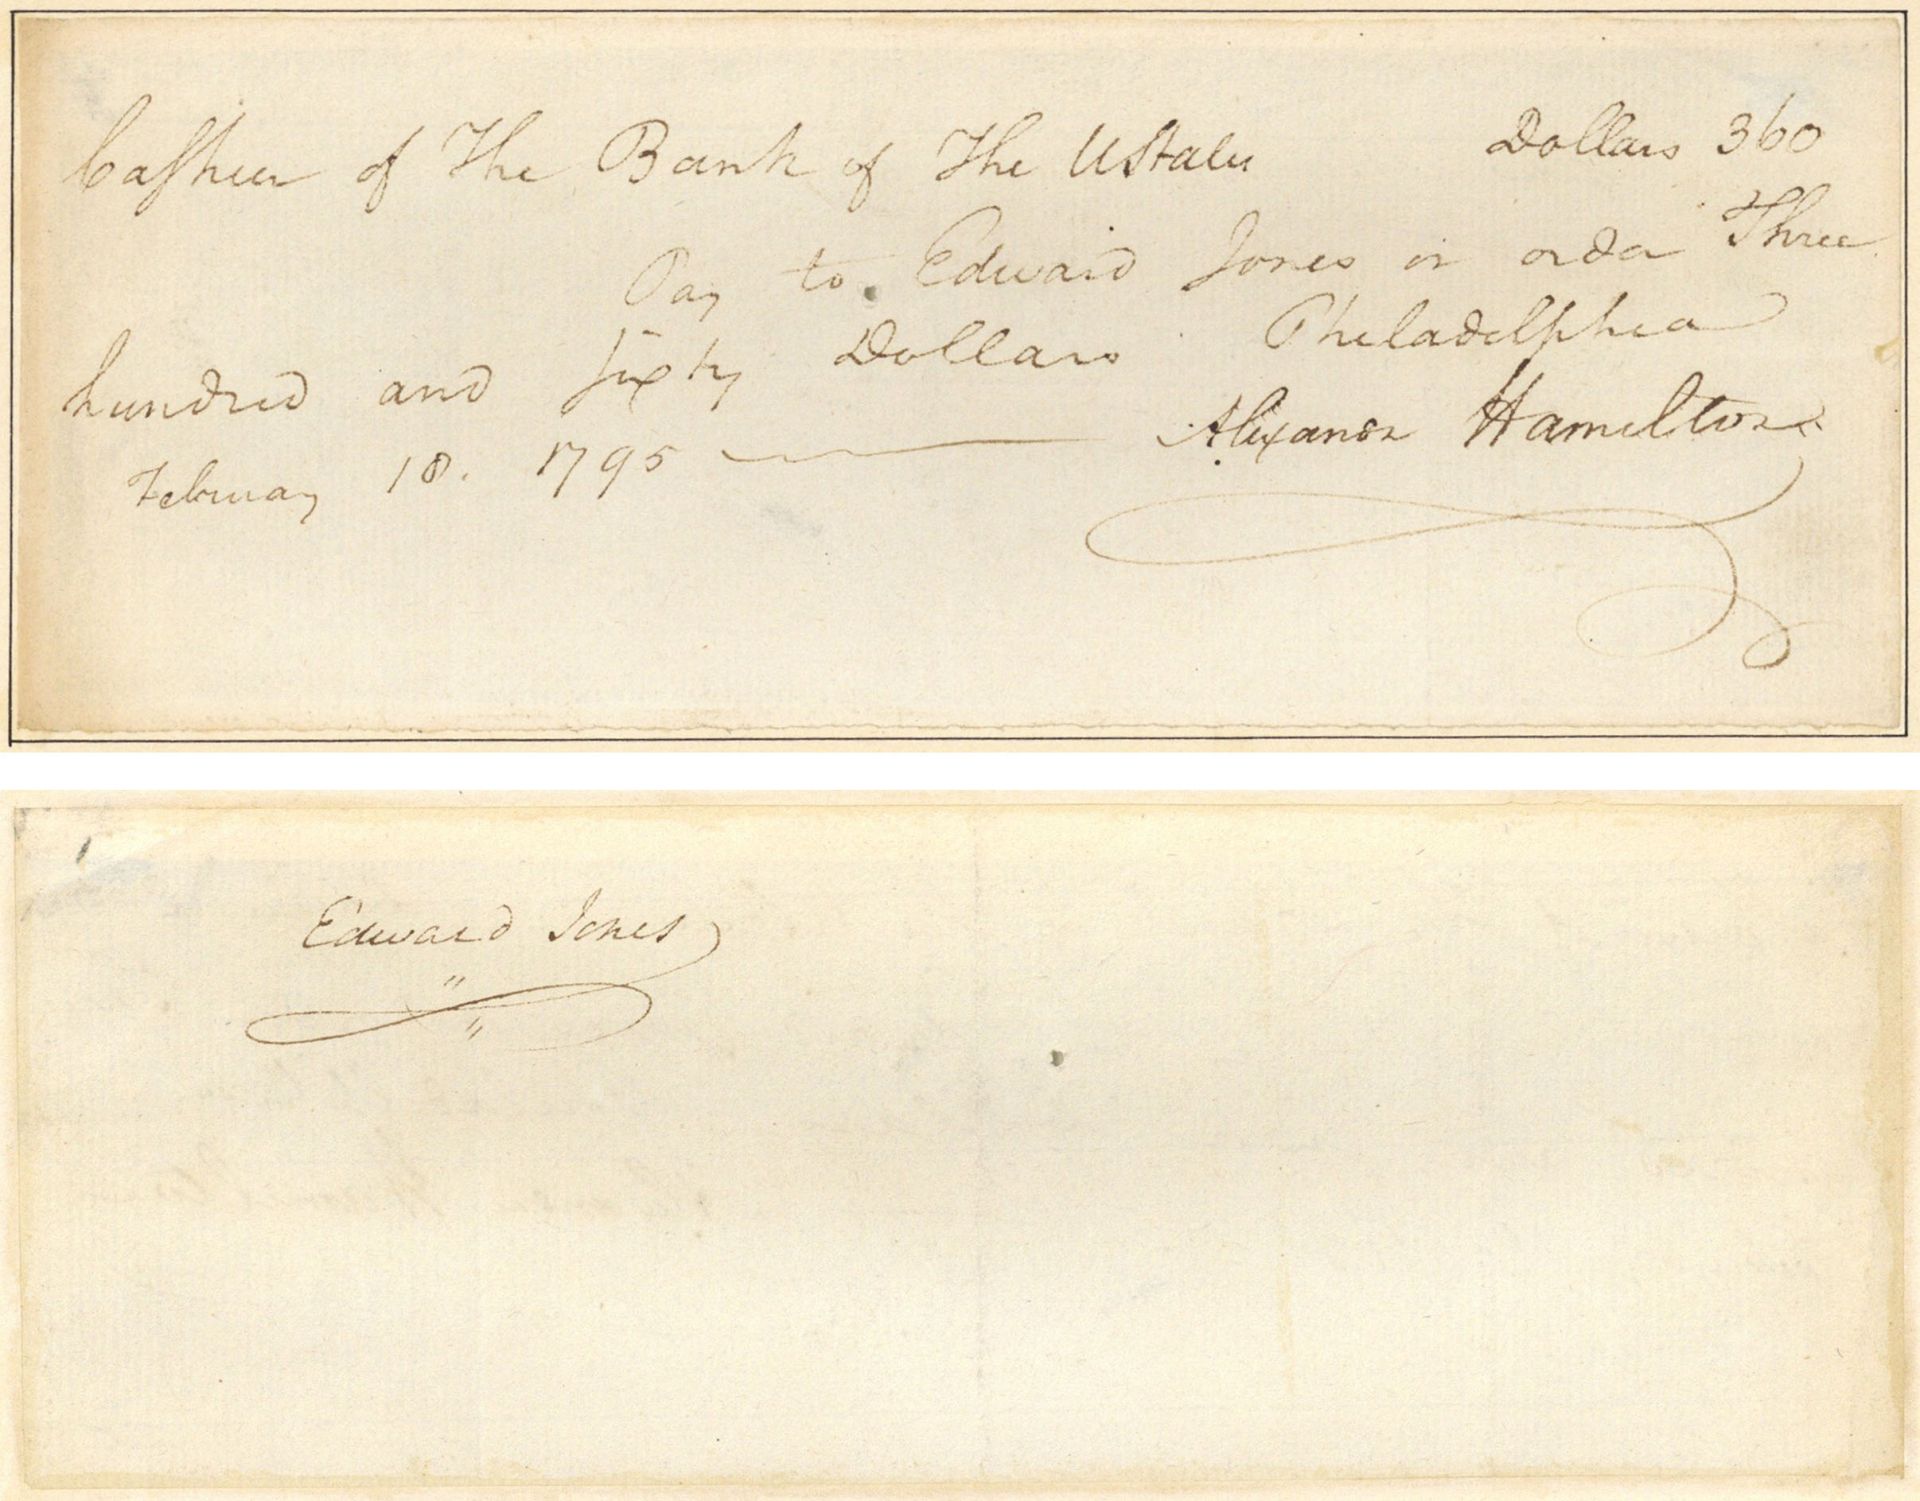 Casheer of The Bank of The UStates Dollars 360
Pay to Edward Jones or order Three
hundred and sixty Dollars Philadelphia
February 18. 1795 Alexander Hamilton
Edward Jones